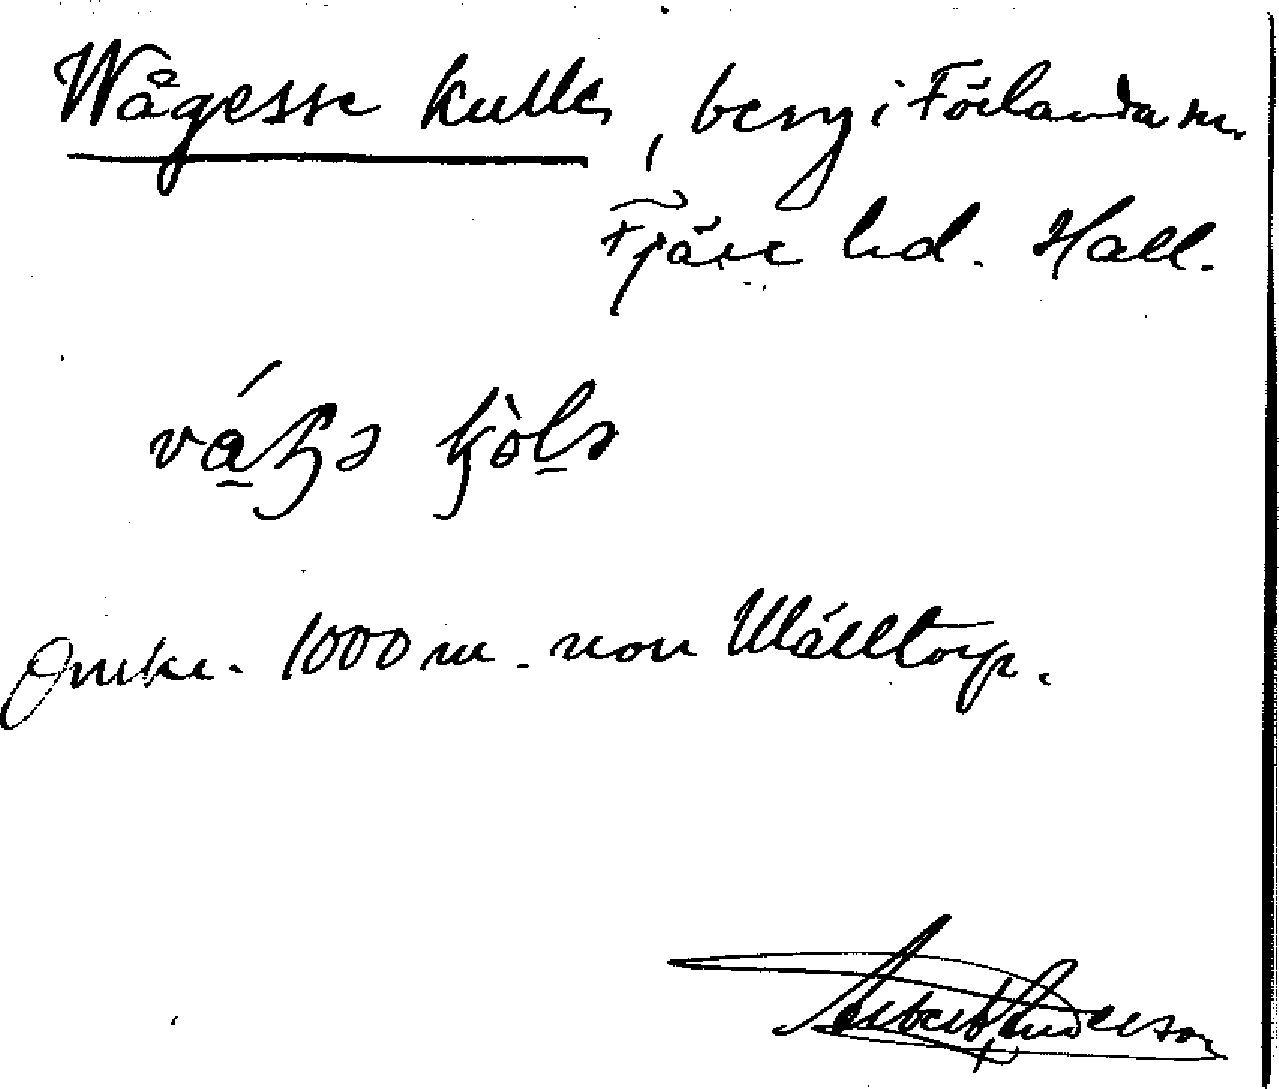 Wågesse kulle, berg i Förlanda sn.
Fjäre hd. Hall.
Omkr. 1000 m. norr Wälltorp.
Albert Anderson